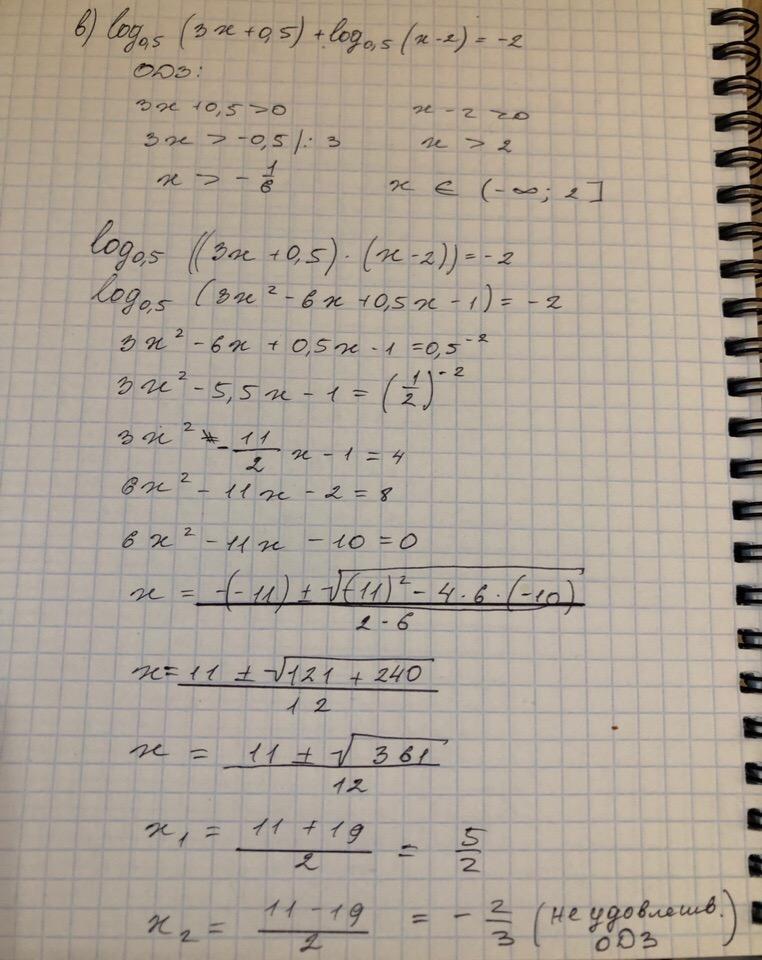 в) log₀,₅ (3x+0,5)+log₀,₅ (x-2)=-2
ОДЗ:
3x+0,5>0 x-2>0
3x>-0,5/:3 x>2
x>-1/6 x∈(-∞; 2]
log₀,₅ ((3x+0,5)·(x-2))=-2
log₀,₅ (3x²-6x+0,5x-1)=-2
3x²-6x+0,5x-1=0,5⁻²
3x²-5,5x-1=(1/2)⁻²
3x²-11/2 x-1=4
6x²-11x-2=8
6x²-11x-10=0
x=(-(-11)±√((-11)²-4·6·(-10)))/(2·6)
x=(11±√(121+240))/12
x=(11±√361)/12
x₁=(11+19)/2=5/2
x₂=(11-19)/2=-2/3 (не удовлетв. ОДЗ)